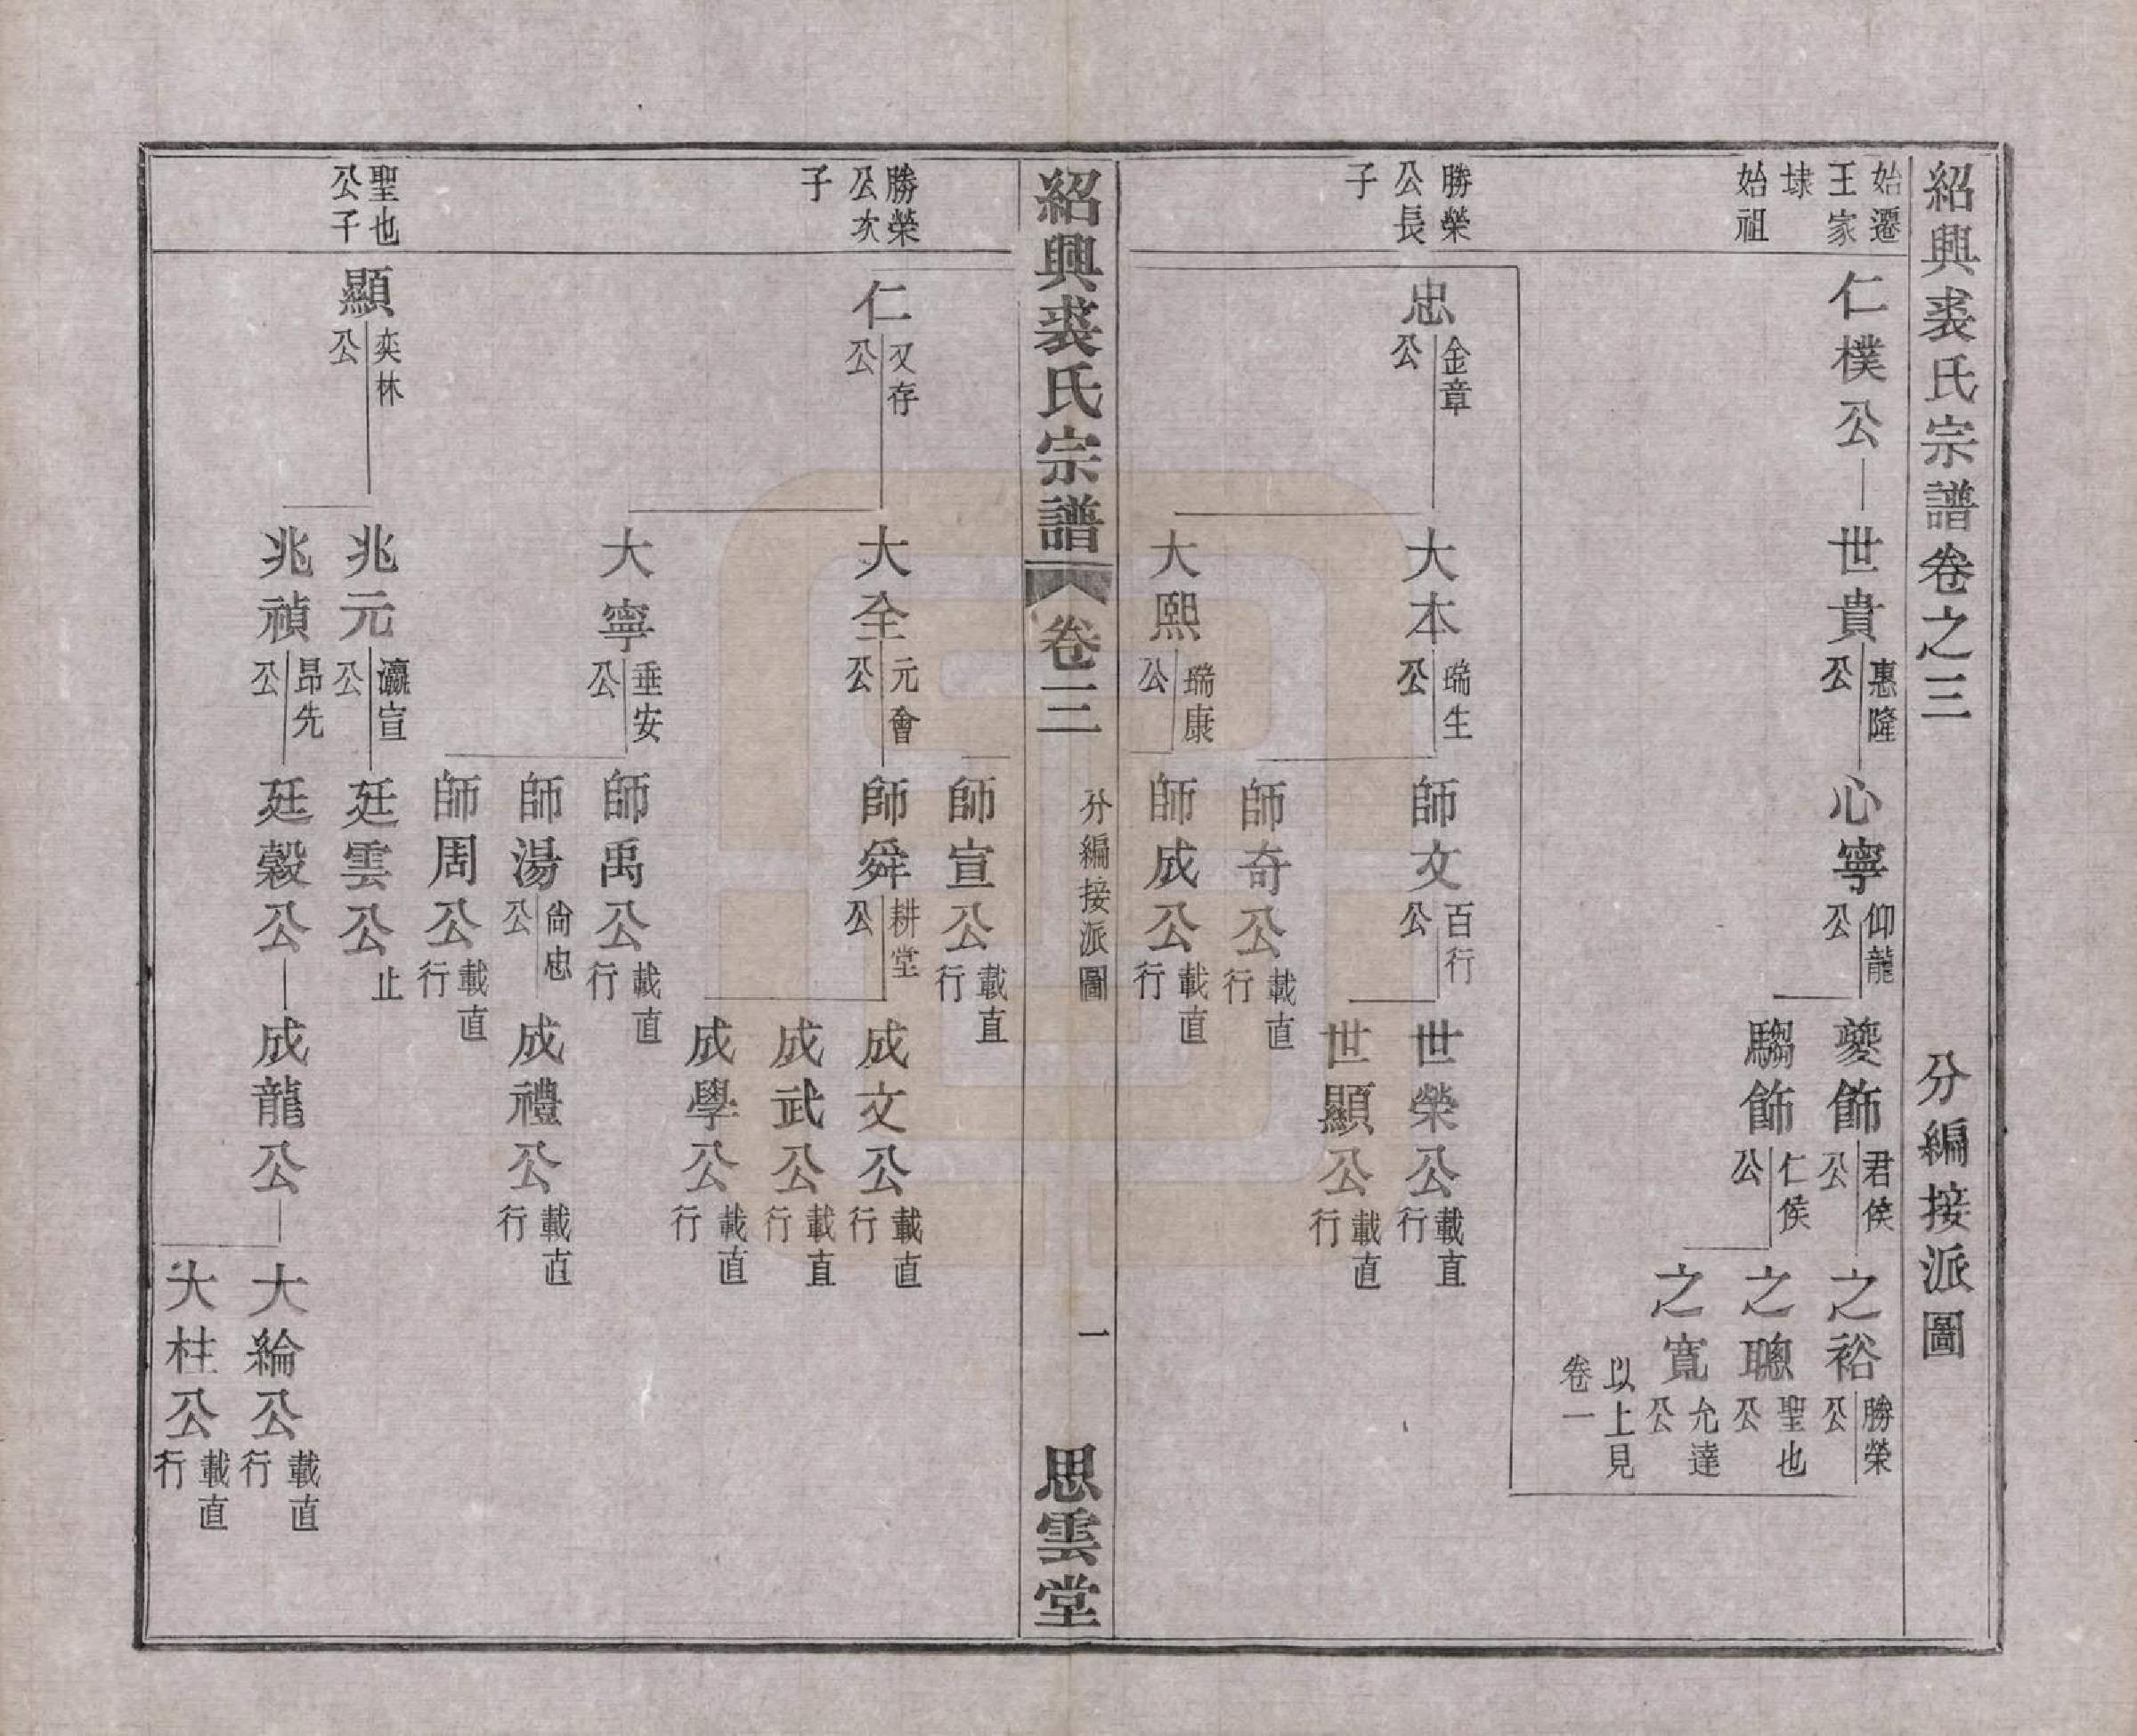 紹興裘氏宗譜卷之三
分編接派圖
始遷
王家
埭
始祖
仁樸公
世貴
惠隆
公
心寧
仰龍
公
夔飾
君侯
公
騶飾
仁侯
公
之裕
勝榮
公
之聰
聖也
公
之寬
允達
公
以上見
卷一
勝榮
公長
子
忠
金章
公
大本
瑞生
公
師文
百行
公
世榮公
載直
行
世顯公
載直
行
師奇公
載直
行
大熙
瑞康
公
師成公
載直
行
紹興裘氏宗譜
卷三
分編接派圖
一
思雲堂
師宣公
載直
行
勝榮
公次
子
仁
又存
公
大全
元會
公
師舜
耕堂
公
成文公
載直
行
成武公
載直
行
成學公
載直
行
大寧
垂安
公
師禹公
載直
行
師湯
尚忠
公
成禮公
載直
行
師周公
載直
行
聖也
公子
顯
奕林
公
兆元
瀛宣
公
廷雲公
止
兆禎
昂先
公
廷穀公
成龍公
大綸公
載直
行
大柱公
載直
行